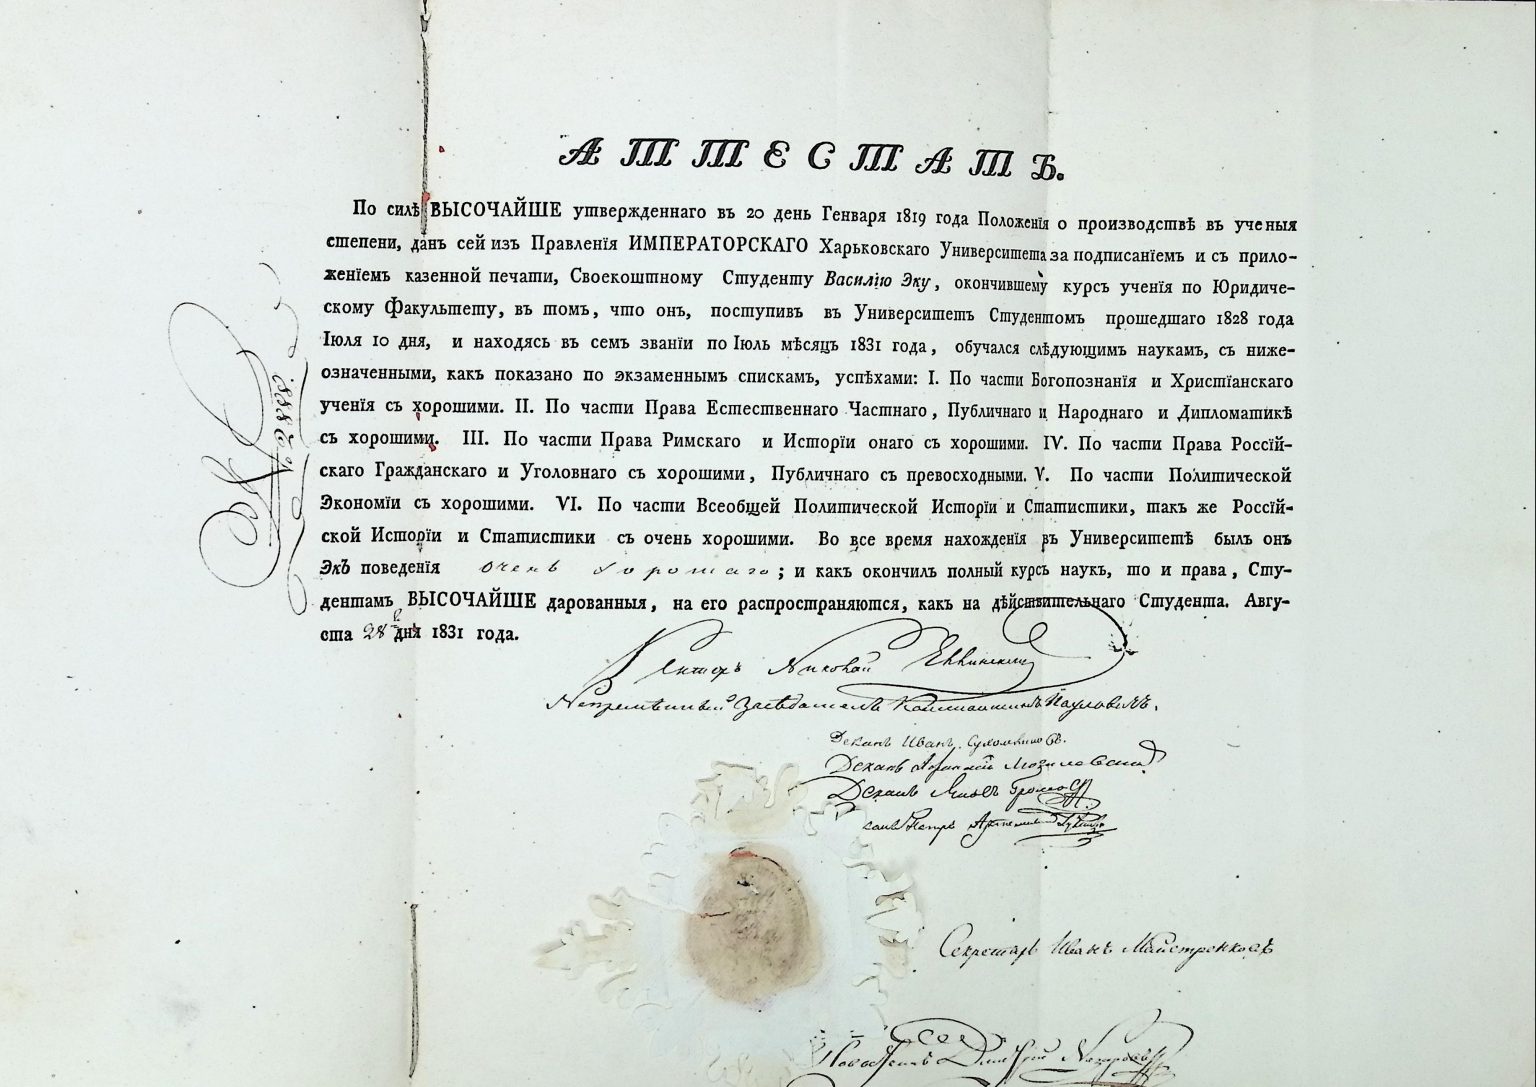 АТТЕСТАТЪ.
По силѣ ВЫСОЧАЙШЕ утвержденнаго въ 20 день Генваря 1819 года Положенія о производствѣ въ ученыя
степени, данъ сей изъ Правленія ИМПЕРАТОРСКАГО Харьковскаго Университета за подписаніемъ и съ прило-
женіемъ казенной печати, Своекоштному Студенту Василію Эку, окончившему курсъ ученія по Юридиче-
скому Факультету, въ томъ, что онъ, поступивъ въ Университетъ Студентомъ прошедшаго 1828 года
Іюля 10 дня, и находясь въ семъ званіи по Іюль мѣсяцъ 1831 года, обучался слѣдующимъ наукамъ, съ ниже-
означенными, какъ показано по экзаменнымъ спискамъ, успѣхами: I. По части Богопознанія и Христіанскаго
ученія съ хорошими. II. По части Права Естественнаго Частнаго, Публичнаго и Народнаго и Дипломатикѣ
съ хорошими. III. По части Права Римскаго и Исторіи онаго съ хорошими. IV. По части Права Россій-
скаго Гражданскаго и Уголовнаго съ хорошими, Публичнаго съ превосходными. V. По части Политической
Экономіи съ хорошими. VI. По части Всеобщей Политической Исторіи и Статистики, так же Россій-
ской Исторіи и Статистики съ очень хорошими. Во все время нахожденія въ Университетѣ былъ онъ
Экъ поведенія очень хорошаго; и какъ окончилъ полный курсъ наукъ, то и права, Сту-
дентамъ ВЫСОЧАЙШЕ дарованныя, на его распространяются, какъ на дѣйствительнаго Студента. Авгу-
ста 28 дня 1831 года.
Ректоръ Николай Еллинскій
Непремѣнный Засѣдатель Константинъ Пауловичъ.
Деканъ Иванъ Сухомлиновъ.
Деканъ Афанасій Могилевскій
Деканъ Громовъ
Петръ Артемовскій Гулакъ
Секретарь Иванъ Майстренковъ